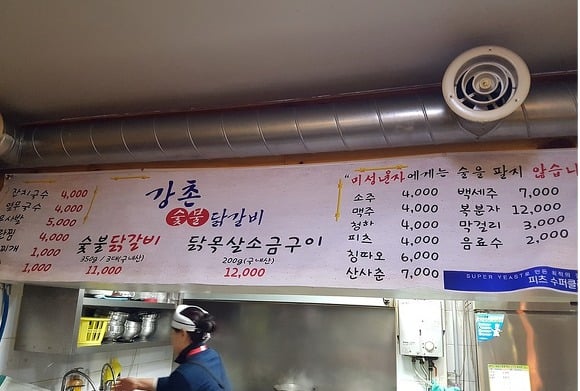 잔치국수 4,000
열무국수 4,000
5,000
4,000
1,000
1,000
강촌
숯불 닭갈비
숯불닭갈비
350g / 3대(국내산)
11,000
닭목살소금구이
200g(국내산)
12,000
"미성년자에게는 술을 팔지 않습니
소주 4,000
맥주 4,000
청하 4,000
피츠 4,000
칭따오 6,000
산사춘 7,000
백세주 7,000
복분자 12,000
막걸리 3,000
음료수 2,000
SUPER YEAST로 만든
피츠 수퍼클